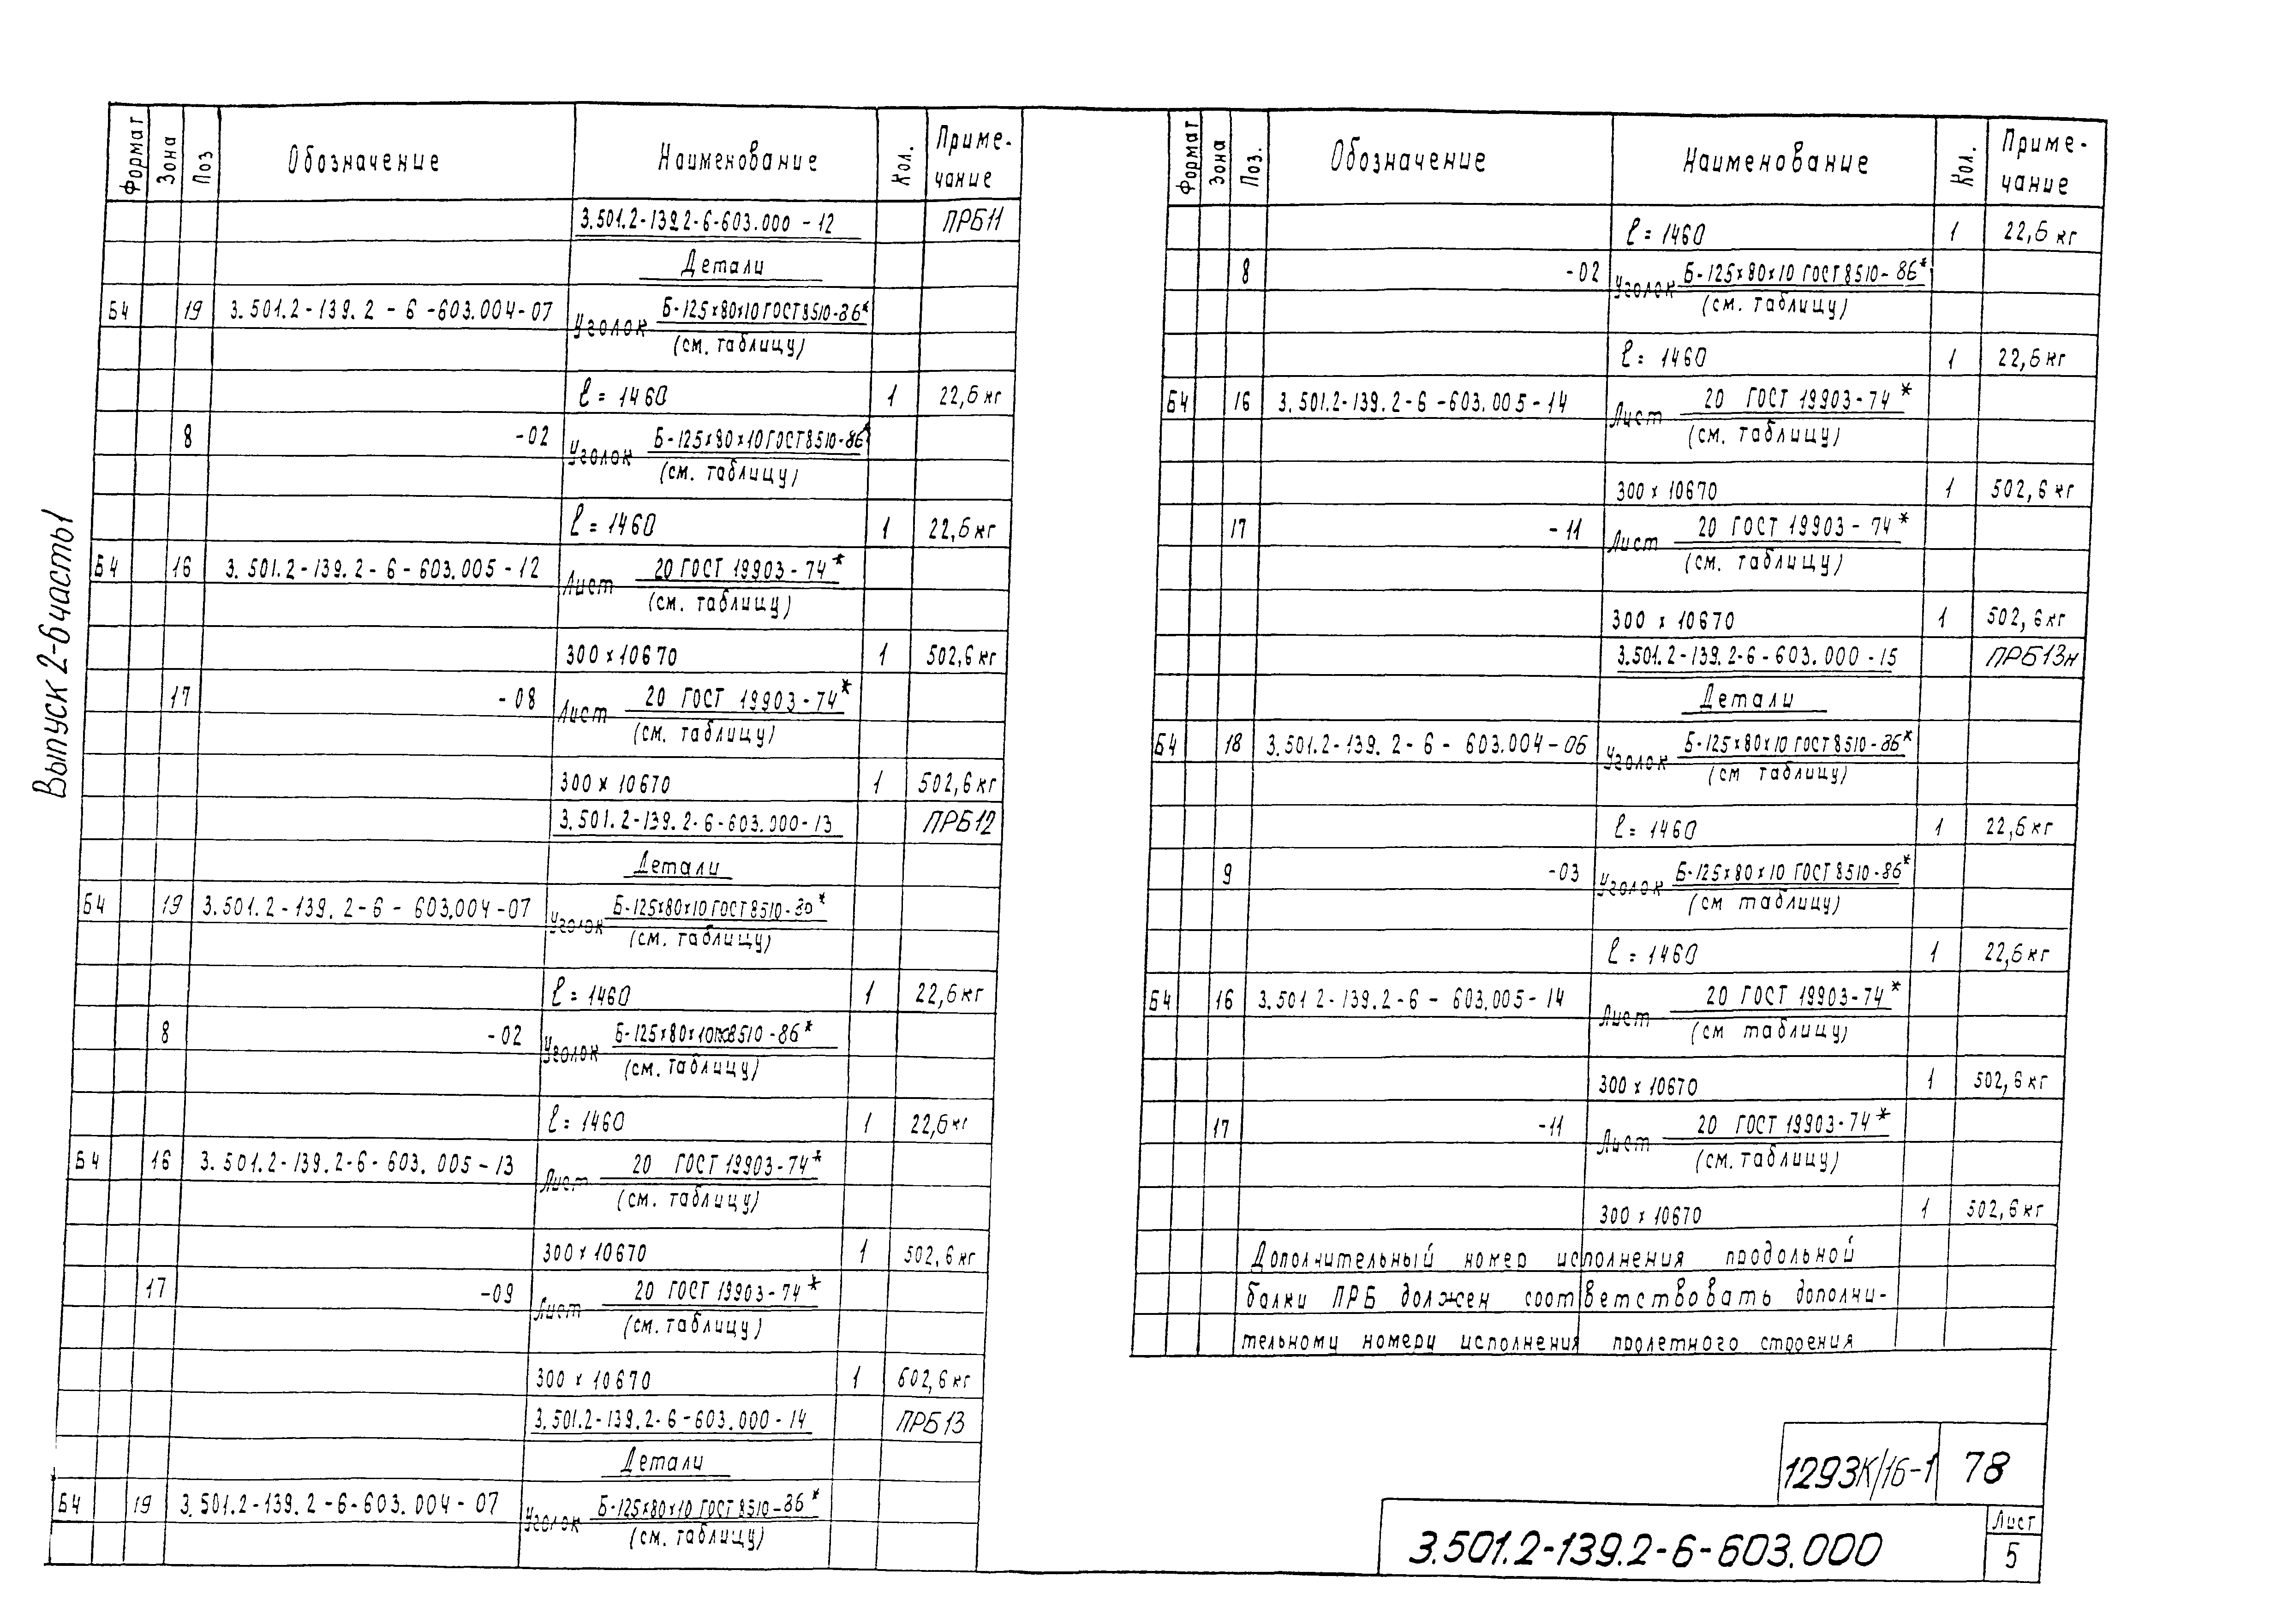 Выпуск 2-6 часть 1
Формат Зона Поз Обозначение Наименование Кол. Приме-
чание
3.501.2-139.2-6-603.000-12 ПРБ11
Детали
Б4 19 3.501.2-139.2-6-603.004-07 Уголок Б-125х80х10 ГОСТ 8510-86*
(см. таблицу)
ℓ=1460 1 22,6 кг
8 -02 Уголок Б-125х80х10 ГОСТ 8510-86*
(см. таблицу)
ℓ=1460 1 22,6 кг
Б4 16 3.501.2-139.2-6-603.005-12 Лист 20 ГОСТ 19903-74*
(см. таблицу)
300х10670 1 502,6 кг
17 -08 Лист 20 ГОСТ 19903-74*
(см. таблицу)
300х10670 1 502,6 кг
3.501.2-139.2-6-603.000-13 ПРБ12
Детали
Б4 19 3.501.2-139.2-6-603.004-07 Уголок Б-125х80х10 ГОСТ 8510-86*
(см. таблицу)
ℓ=1460 1 22,6 кг
8 -02 Уголок Б-125х80х10 8510-86*
(см. таблицу)
ℓ=1460 1 22,6 кг
Б4 16 3.501.2-139.2-6-603.005-13 Лист 20 ГОСТ 19903-74*
(см. таблицу)
300х10670 1 502,6 кг
17 -09 Лист 20 ГОСТ 19903-74*
(см. таблицу)
300х10670 1 502,6 кг
3.501.2-139.2-6-603.000-14 ПРБ13
Детали
Б4 19 3.501.2-139.2-6-603.004-07 Уголок Б-125х80х10 ГОСТ 8510-86*
(см. таблицу)
Формат Зона Поз. Обозначение Наименование Кол. Приме-
чание
ℓ=1460 1 22,6 кг
8 -02 Уголок Б-125х80х10 ГОСТ 8510-86*
(см. таблицу)
ℓ=1460 1 22,6 кг
Б4 16 3.501.2-139.2-6-603.005-14 Лист 20 ГОСТ 19903-74*
(см. таблицу)
300х10670 1 502,6 кг
17 -11 Лист 20 ГОСТ 19903-74*
(см. таблицу)
300х10670 1 502,6 кг
3.501.2-139.2-6-603.000-15 ПРБ13н
Детали
Б4 18 3.501.2-139.2-6-603.004-06 Уголок Б-125х80х10 ГОСТ 8510-86*
(см таблицу)
ℓ=1460 1 22,6 кг
9 -03 Уголок Б-125х80х10 ГОСТ 8510-86*
(см таблицу)
ℓ=1460 1 22,6 кг
Б4 16 3.501 2-139.2-6-603.005-14 Лист 20 ГОСТ 19903-74*
(см таблицу)
300х10670 1 502,6 кг
17 -11 Лист 20 ГОСТ 19903-74*
(см. таблицу)
300х10670 1 502,6 кг
Дополнительный номер исполнения продольной
балки ПРБ должен соответствовать дополни-
тельному номеру исполнения пролетного строения
1293К/16-1 78
3.501.2-139.2-6-603.000 Лист
5